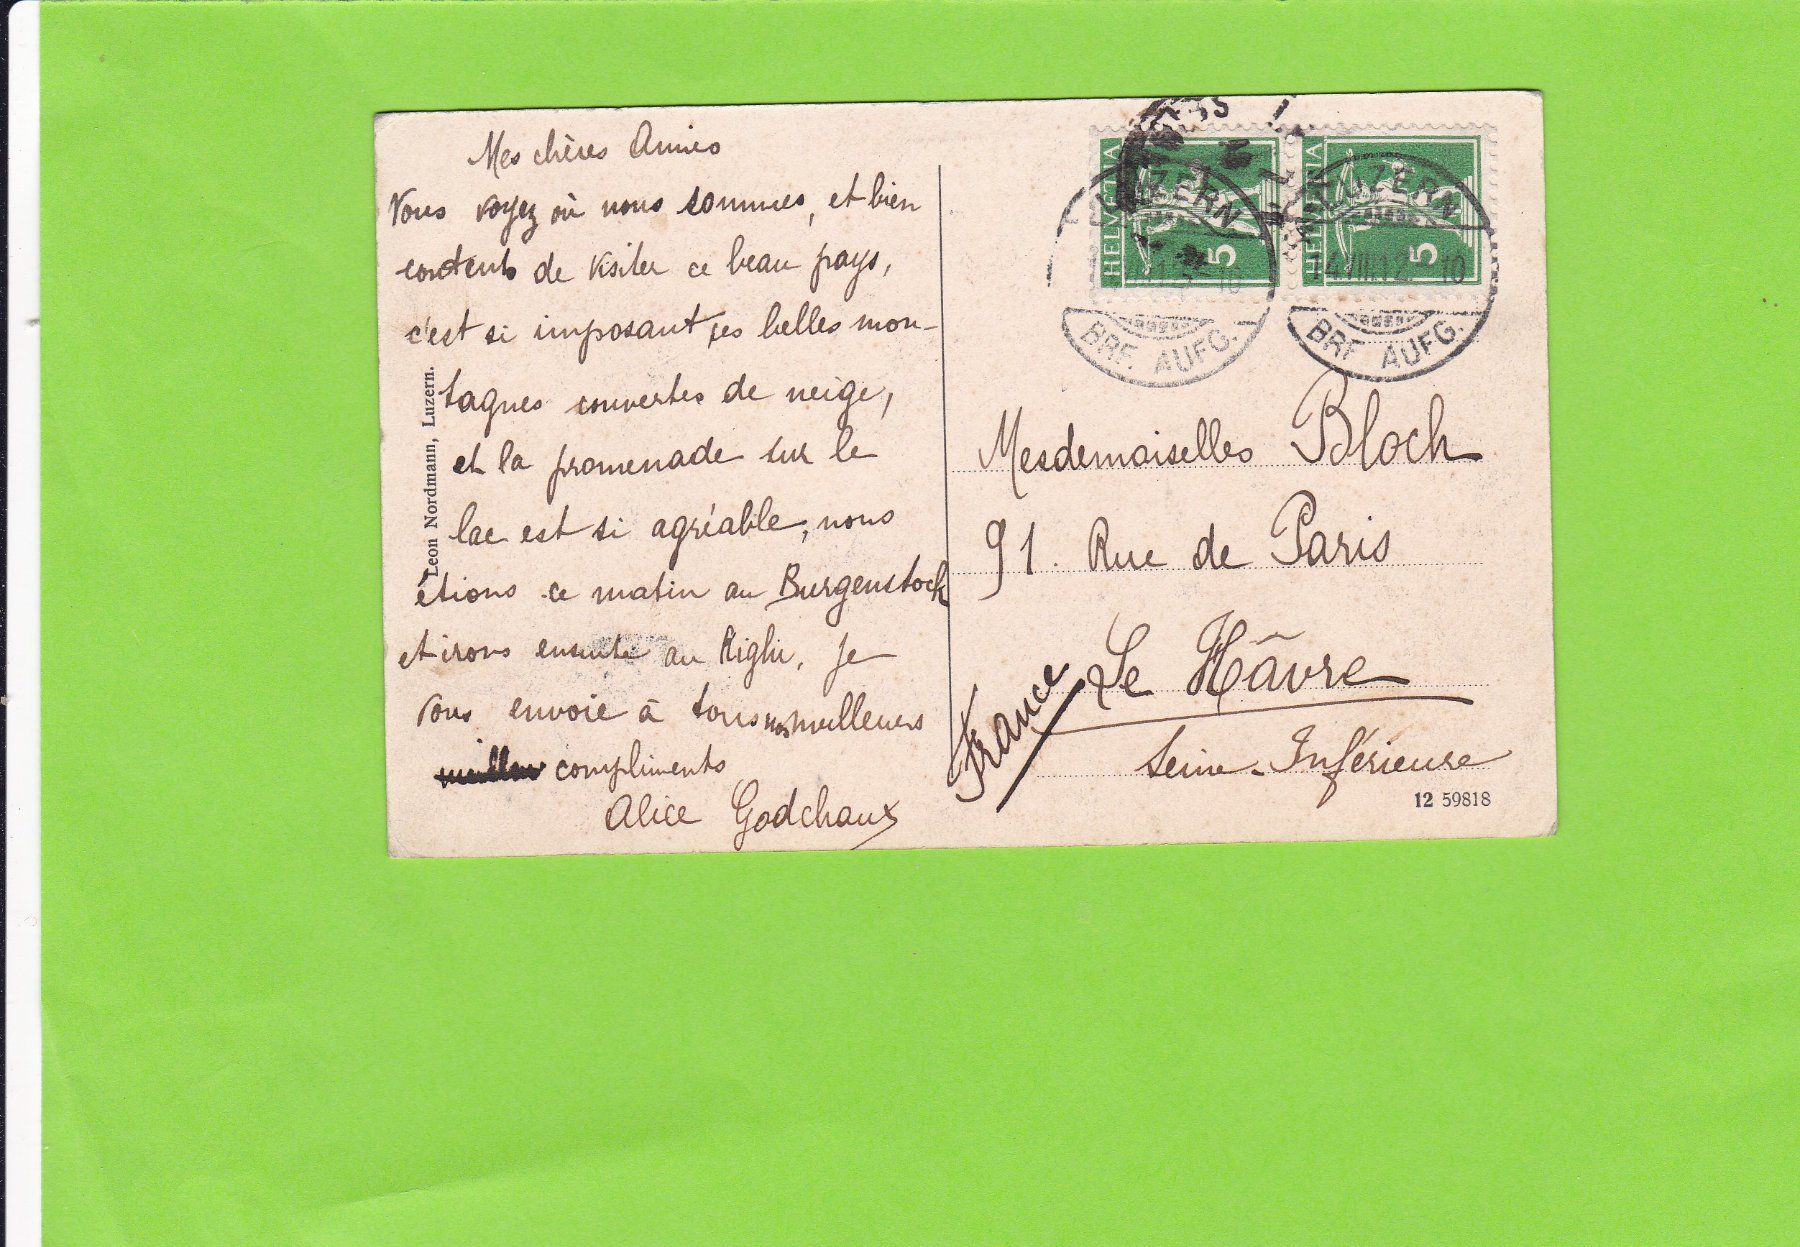 Mes chères Amies
Vous voyez où nous sommes, et bien
contents de visiter ce beau pays,
c'est si imposant, ces belles mon-
tagnes couvertes de neige,
et la promenade sur le
lac est si agréable, nous
étions ce matin au Burgenstock
et irons ensuite au Righi. Je
vous envoie à tous nos meilleurs
compliments
Alice Godchaux
Leon Nordmann, Luzern.
HELVETIA
5
HELVETIA
5
LUZERN
BRF. AUFG.
LUZERN
14.VIII.12. 10
BRF. AUFG.
Mesdemoiselles Bloch
91. Rue de Paris
Le Hâvre
France
Seine-Inférieure
12 59818